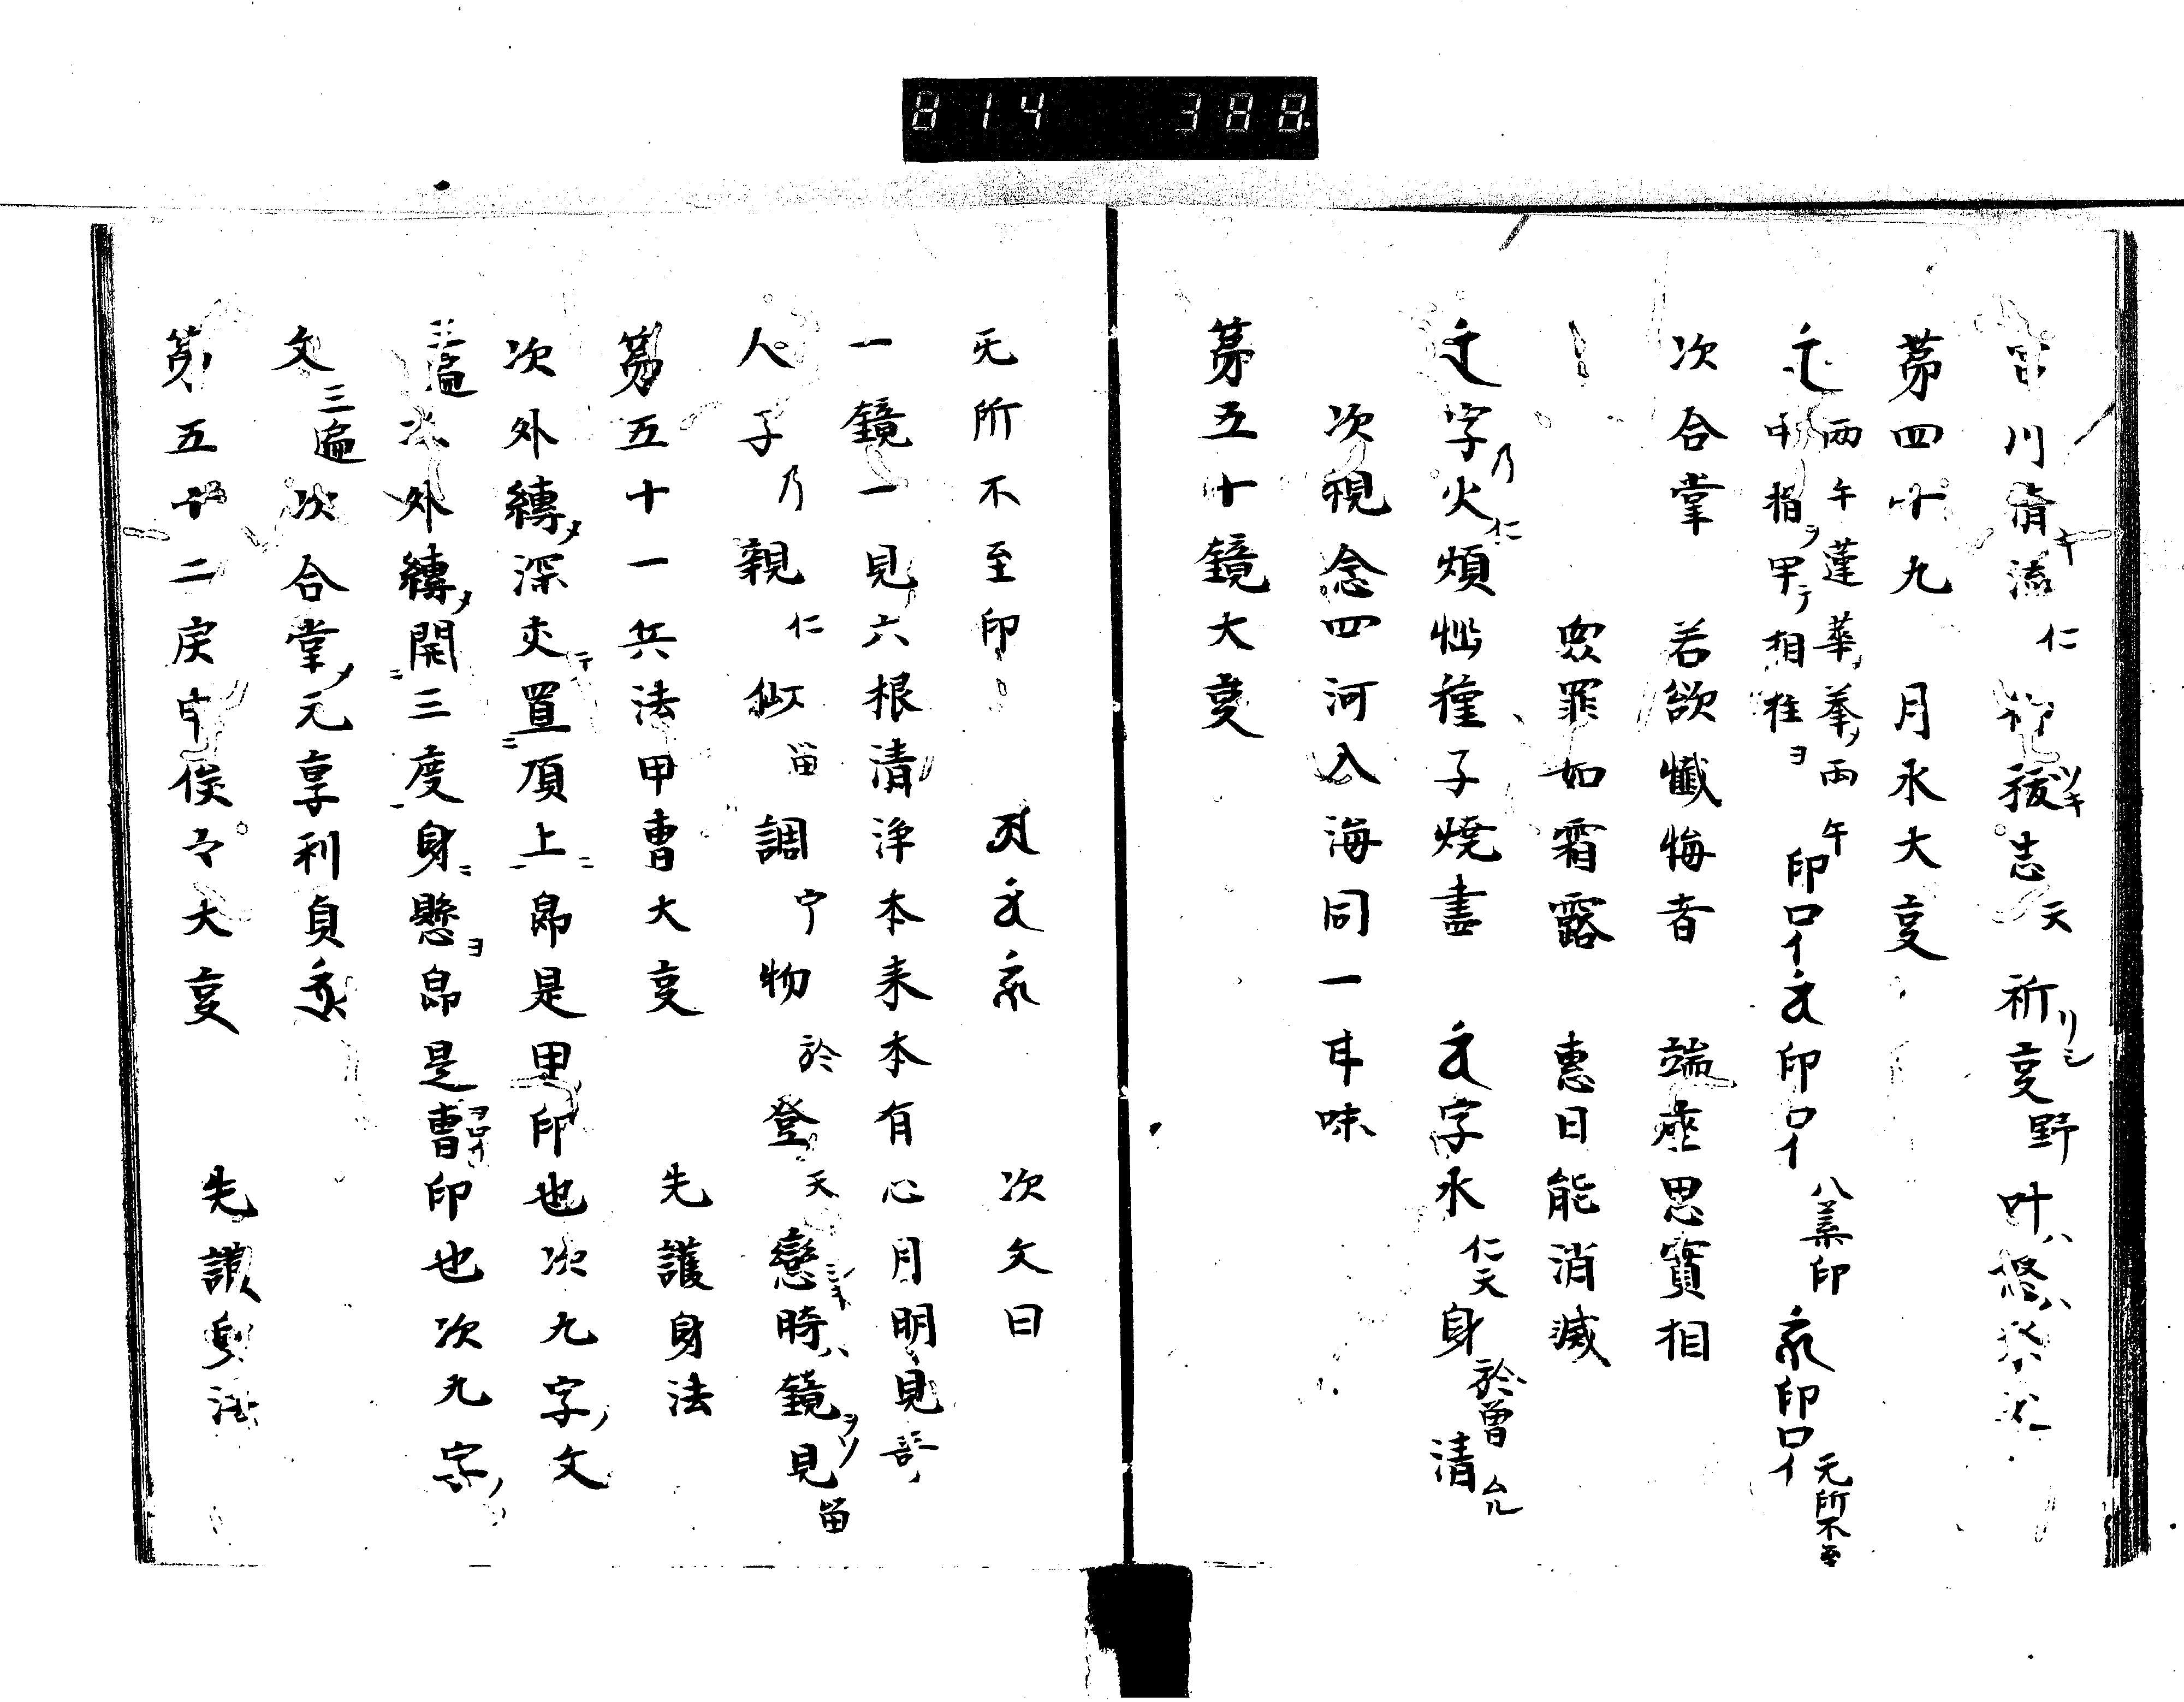 814 388
宮川清キ流仁 祓志天 祈リシ事野叶ハ
第四十九 月水大事
両手蓮華拳両手
中指ヲ甲テ相柱ヨ 印口イ 印口イ 八葉印 印口イ 无所不至
次合掌 若欲懺悔者 端座思實相
衆罪如霜露 惠日能消滅
字乃火仁煩悩種子燒盡 字水仁天身於曽清ムル
次観念四河入海同一甘味
第五十鏡大事
无所不至印 次文曰
一鏡一見六根清淨本来本有心月明見
人子乃親仁似留調宁物於登天戀シキ時ハ鏡ヲソ見留
第五十一兵法甲曹大事 先護身法
次外縛〆深夾テ置頂上帰是甲印也次九字ノ文
三遍次外縛〆開三度身ニ懸ヨ帰是曹印也次九字ノ
文三遍次合掌〆元亨利貞
第五十二庚申俟々大事 先護身法